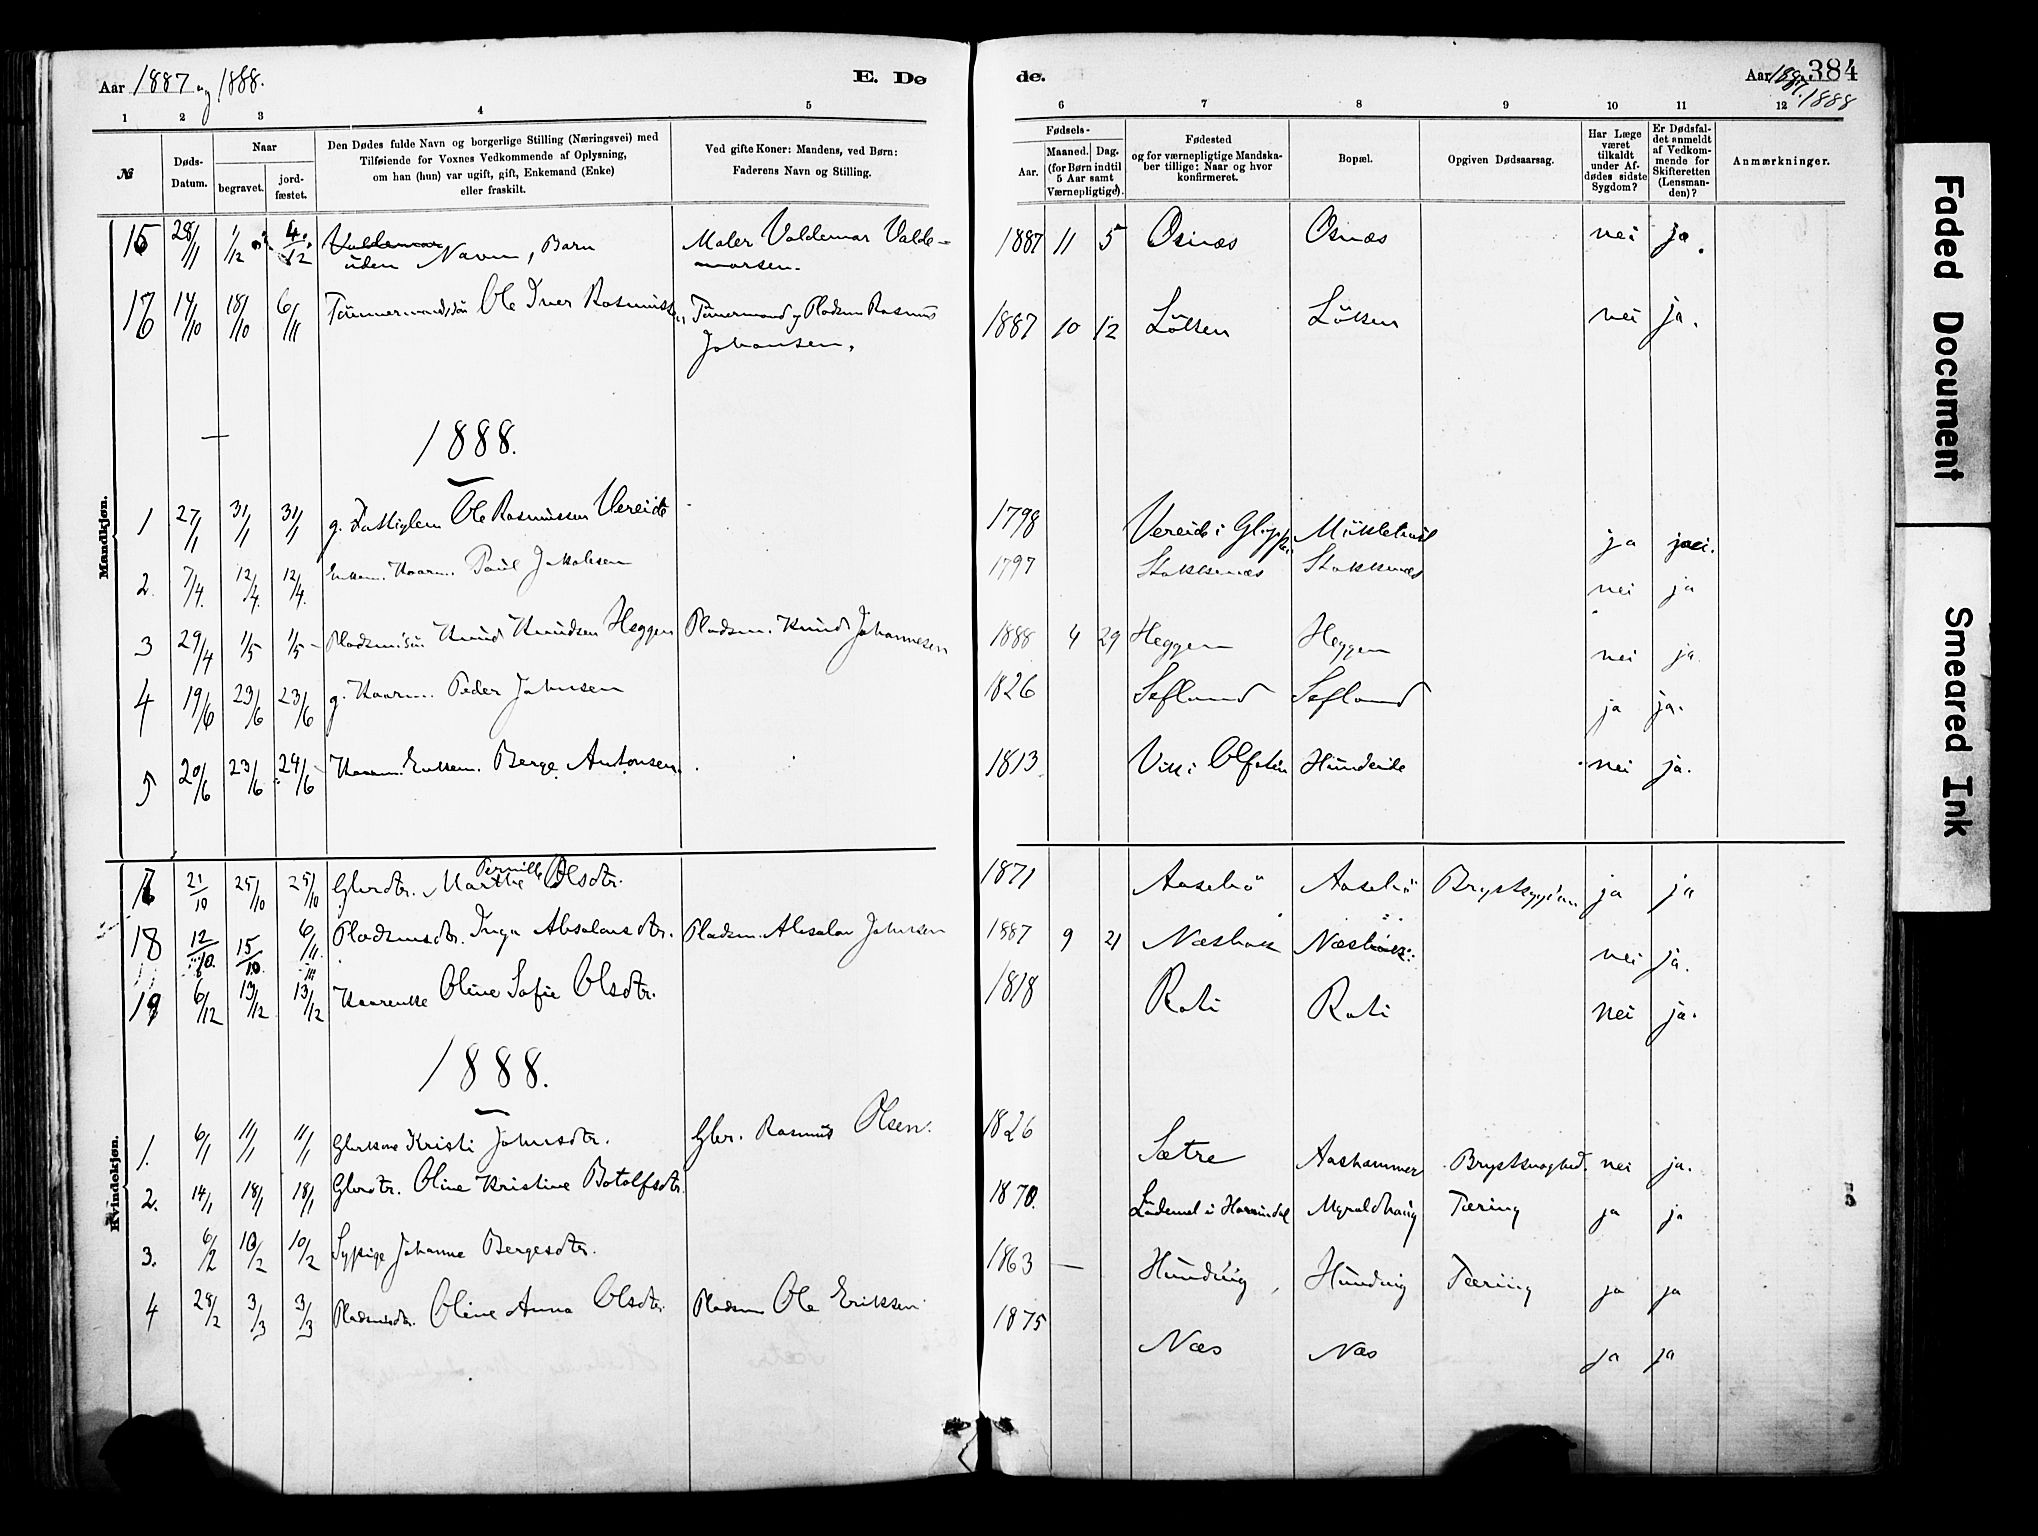 Aar 1887 og 1888.
E. Dø
de.
Aar 1887. 1888
384
1 2 3 4 5 6 7 8 9 10 11 12
№
Døds-Datum.
Naar
begravet.
jord-fæstet.
Den Dødes fulde Navn og borgerlige Stilling (Næringsvei) med
Tilføiende for Voxnes Vedkommende af Oplysning,
om han (hun) var ugift, gift, Enkemand (Enke)
eller fraskilt.
Ved gifte Koner: Mandens, ved Børn:
Faderens Navn og Stilling.
Fødsels-
Aar.
Maaned. Dag.
(for Børn indtil
5 Aar samt
Værnepligtige).
Fødested
og for værnepligtige Mandska-
ber tillige: Naar og hvor
konfirmeret.
Bopæl.
Opgiven Dødsaarsag.
Har Læge
været
tilkaldt
under Af-
dødes sidste
Sygdom?
Er Dødsfal-
det anmeldt
af Vedkom-
mende for
Skifteretten
(Lensman-
den)?
Anmærkninger.
Mandkjøn.
15 28/11 1/12 4/12 Valdemar uden Navn, Barn Maler Valdemar Valde-
marsen. 1887 11 5 Osnæs Osnæs nei ja.
16 14/10 18/10 6/11 Tømmermandssøn Ole Iver Rasmussen Tømmermand og Pladsm Rasmus
Johansen. 1887 10 12 Løkken Løkken nei ja.
1888.
1 27/1 31/1 31/1 g. Fattiglem Ole Rasmussen Vereide 1798 Vereide i Gloppen Mikklebust ja nei.
2. 7/4. 12/4. 12/4. Enkem. Kaarm. Paul Jakobsen 1797 Stokkenæs Stokkenæs nei ja
3 29/4 1/5 1/5 Pladsm.søn Knud Knudsen Heggen Pladsm. Knud Johannesen 1888 4 29 Heggen Heggen nei ja.
4 19/6 23/6 23/6 g. Kaarm. Peder Johnsen 1826 Sefland Sefland ja ja.
5 20/6 23/6 24/6 Kaarm. Enkem. Berge Antonsen. 1813 Vik i Olfoten Hundeide nei ja.
17 21/10 25/10 25/10 Gbrdtr. Marthe Pernille Olsdtr. 1871 Aasebø Aasebø Brystsygdom ja ja
18 12/10. 15/10. 6/11 Pladsmsdtr. Inga Absalonsdtr. Pladsm. Absalon Johnsen 1887 9 21 Næsbak Næsbak nei ja.
19 6/12 13/12 13/12 Kaarenke Oline Sofie Olsdtr. 1818 Roti Roti nei ja.
1888.
Kvindekjøn.
1. 6/1 11/1 11/1 Gbrkone Kristi Johnsdtr. Gbr. Rasmus Olsen. 1826 Sætre Aashammer Brystsvaghed. nei ja.
2. 14/1 18/1 18/1 Gbrdtr. Oline Kristine Botolfsdtr. 1870. Lødemel i Hornindal Myroldhaug Tæring ja ja
3. 6/2 10/2 10/2 Sypige Johanne Bergesdtr. 1863 — Hundvig, Hundvig Tæring ja ja
4 28/2 3/3 3/3 Pladsmsdtr. Oline Anna Olsdtr. Pladsm Ole Eriksen 1875 Næs Næs ja ja
Faded Document
Smeared Ink